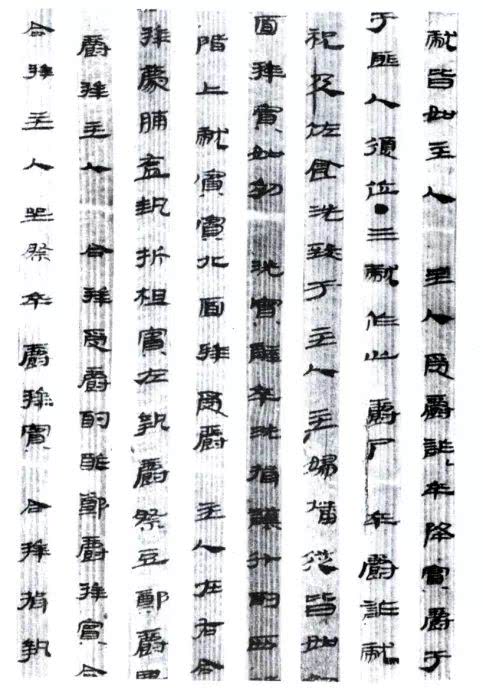 献皆如主人主人受爵詐卒降實爵于
于匪入復位●三献作止爵尸卒爵詐献
祝及佐食洗致于主人主婦燔從皆如
面拜賓如初洗賓觶卒洗揖讓升酌西
階上献賓賓北面拜受爵主人在右合
拜薦脯執折柤賓左執爵祭豆鄭爵興
爵拜主人合拜受爵酌酢鄭爵拜賓合
合拜主人坐祭卒爵拜賓合拜揖執